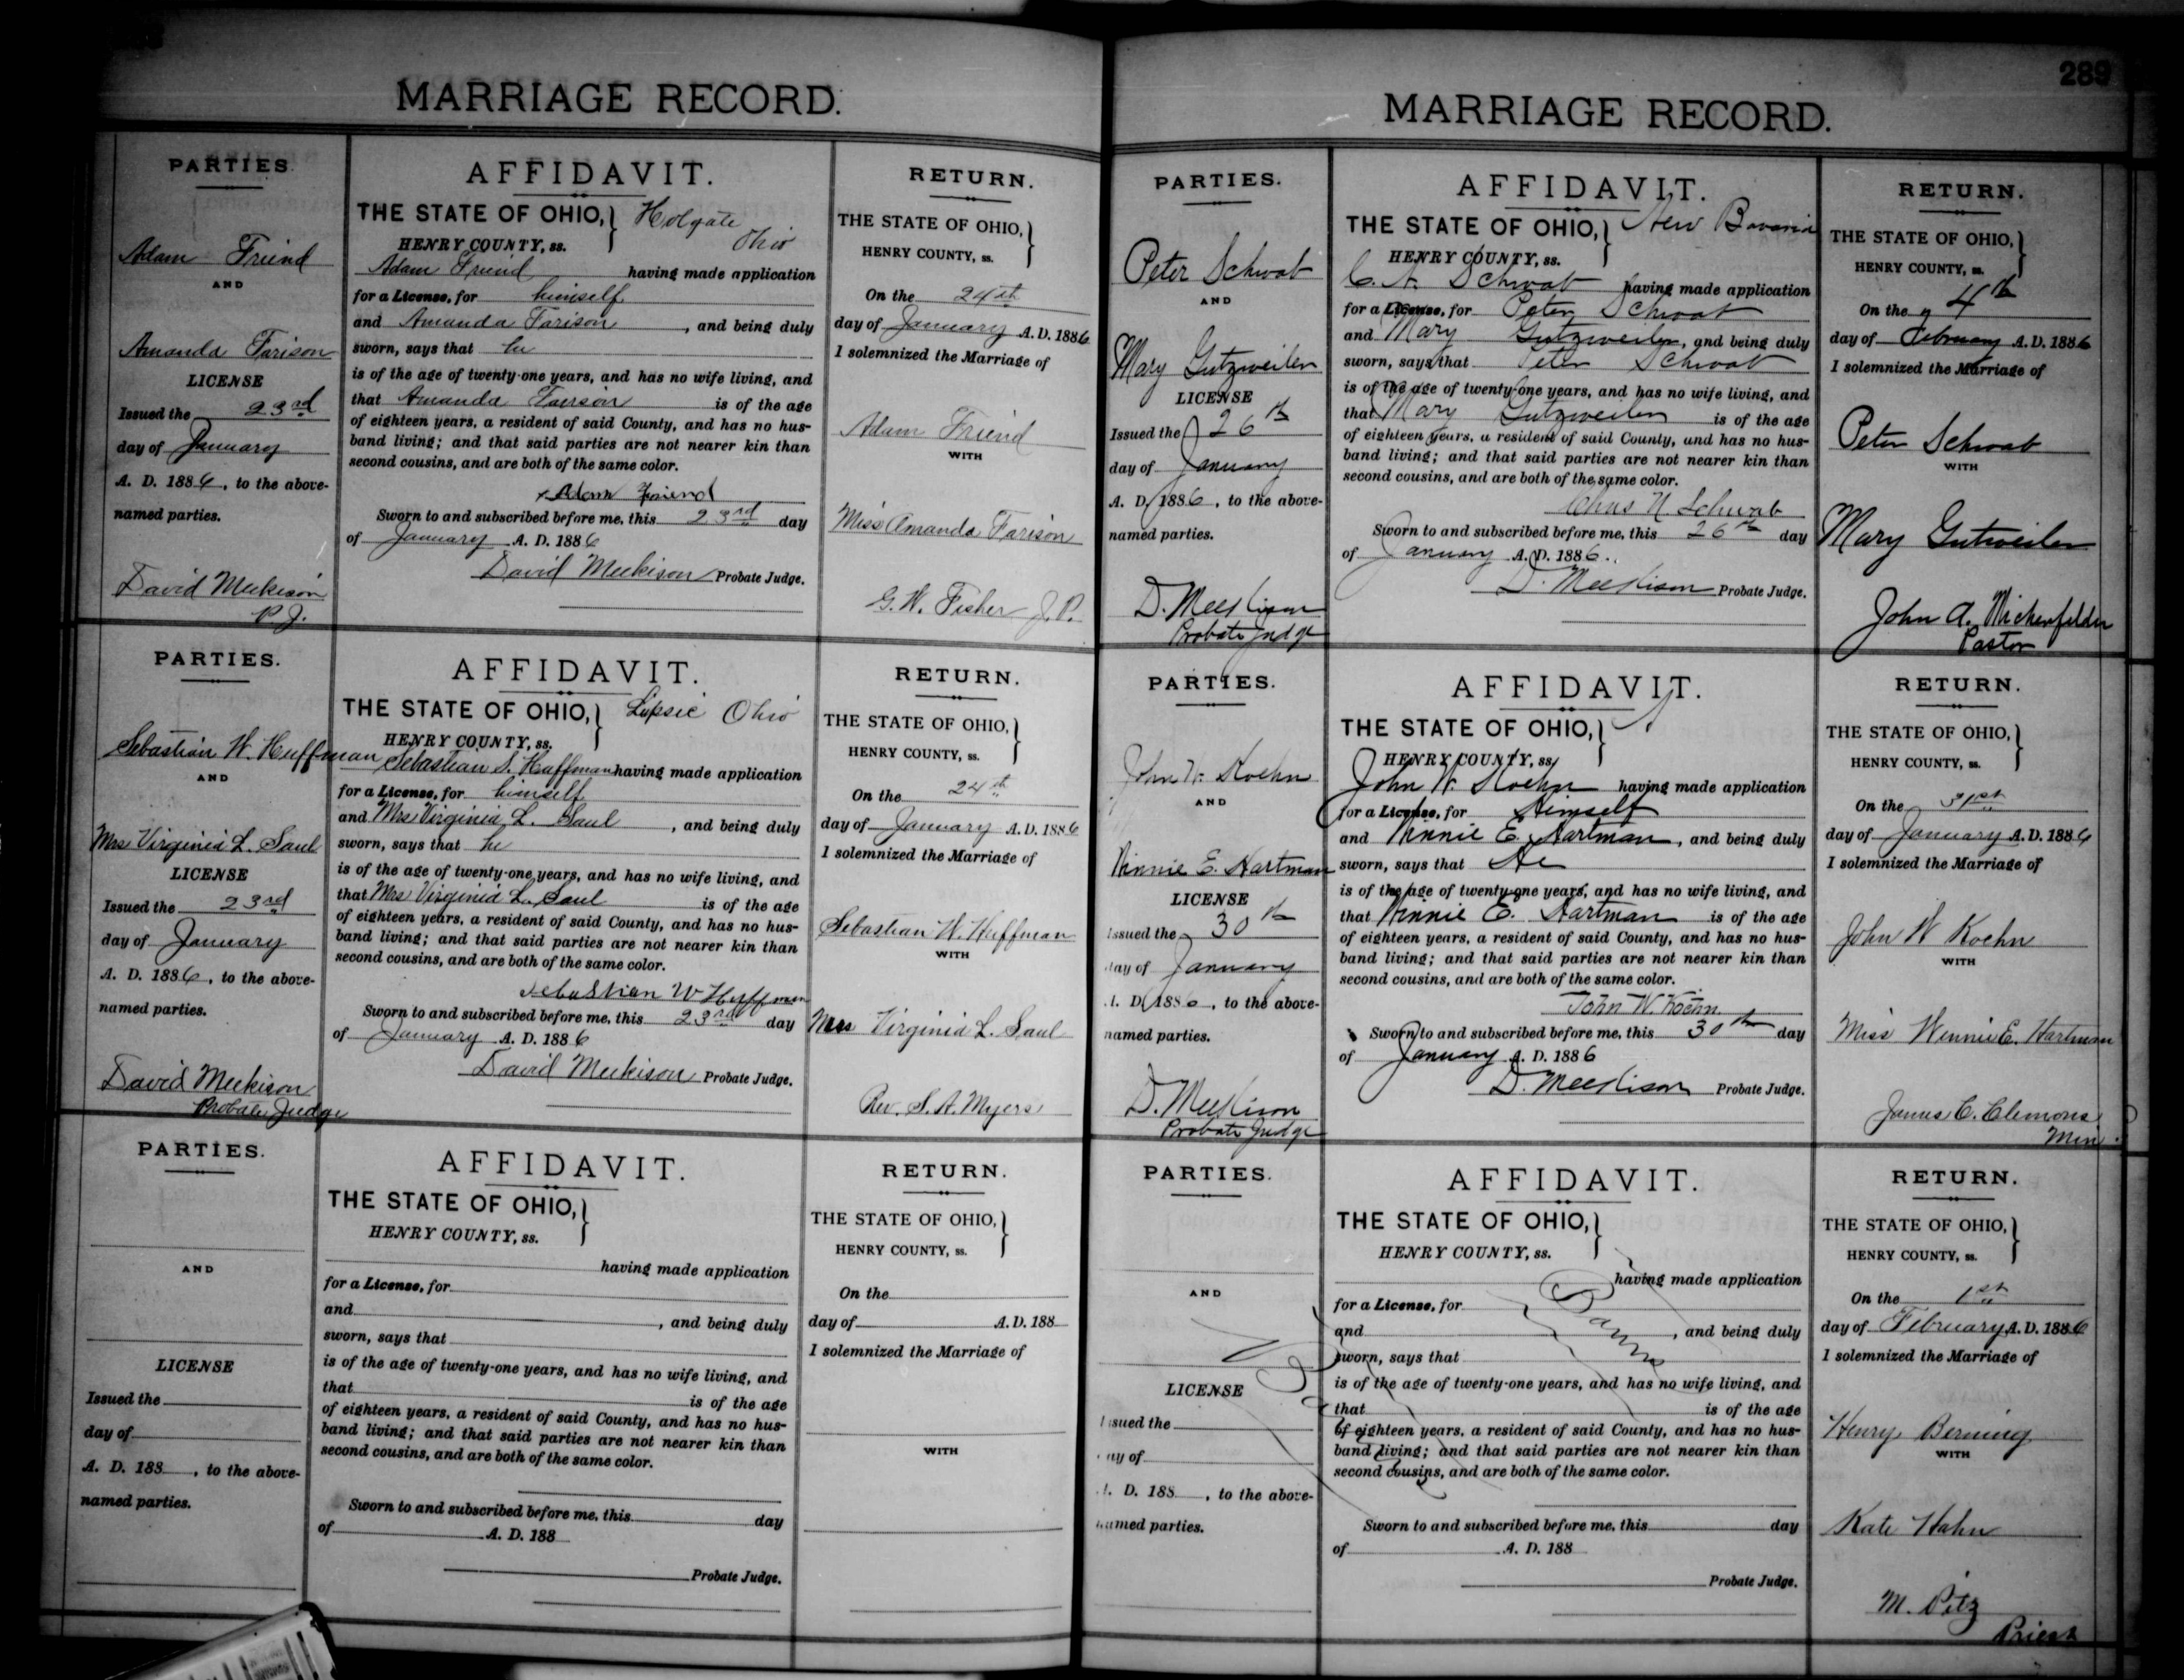 MARRIAGE RECORD.
PARTIES.
Adam Friend
AND
Amanda Farison
LICENSE
Issued the 23rd
day of January
A. D. 1886, to the above-
named parties.
David Meekison
P. J.
AFFIDAVIT.
THE STATE OF OHIO, } Holgate
HENRY COUNTY, ss. Ohio
Adam Friend having made application
for a License, for himself
and Amanda Farison, and being duly
sworn, says that he
is of the age of twenty-one years, and has no wife living, and
that Amanda Farison is of the age
of eighteen years, a resident of said County, and has no hus-
band living; and that said parties are not nearer kin than
second cousins, and are both of the same color.
x Adam Friend
Sworn to and subscribed before me, this 23rd day
of January A. D. 1886
David Meekison Probate Judge.
RETURN.
THE STATE OF OHIO, }
HENRY COUNTY, ss.
On the 24th
day of January A. D. 1886
I solemnized the Marriage of
Adam Friend
WITH
Miss Amanda Farison
G. W. Fisher J. P.
PARTIES.
Sebastian W. Huffman
AND
Mrs Virginia L. Saul
LICENSE
Issued the 23rd
day of January
A. D. 1886, to the above-
named parties.
David Meekison
Probate Judge
AFFIDAVIT.
THE STATE OF OHIO, } Lipsic Ohio
HENRY COUNTY, ss.
Sebastian S. Huffman having made application
for a License, for himself
and Mrs Virginia L. Saul, and being duly
sworn, says that he
is of the age of twenty-one years, and has no wife living, and
that Mrs Virginia L. Saul is of the age
of eighteen years, a resident of said County, and has no hus-
band living; and that said parties are not nearer kin than
second cousins, and are both of the same color.
Sebastian W Huffman
Sworn to and subscribed before me, this 23rd day
of January A. D. 1886
David Meekison Probate Judge.
RETURN.
THE STATE OF OHIO, }
HENRY COUNTY, ss.
On the 24th
day of January A. D. 1886
I solemnized the Marriage of
Sebastian W. Huffman
WITH
Mrs Virginia L. Saul
Rev. S. A. Myers
PARTIES.
AND
LICENSE
Issued the
day of
A. D. 188 , to the above-
named parties.
AFFIDAVIT.
THE STATE OF OHIO, }
HENRY COUNTY, ss.
having made application
for a License, for
and , and being duly
sworn, says that
is of the age of twenty-one years, and has no wife living, and
that is of the age
of eighteen years, a resident of said County, and has no hus-
band living; and that said parties are not nearer kin than
second cousins, and are both of the same color.
Sworn to and subscribed before me, this day
of A. D. 188
Probate Judge.
RETURN.
THE STATE OF OHIO, }
HENRY COUNTY, ss.
On the
day of A. D. 188
I solemnized the Marriage of
WITH
289
MARRIAGE RECORD.
PARTIES.
Peter Schwab
AND
Mary Gutzweiler
LICENSE
Issued the 26th
day of January
A. D. 1886, to the above-
named parties.
D. Meekison
Probate Judge
AFFIDAVIT.
THE STATE OF OHIO, } New Bavaria
HENRY COUNTY, ss.
C. N. Schwab having made application
for a License, for Peter Schwab
and Mary Gutzweiler, and being duly
sworn, says that Peter Schwab
is of the age of twenty-one years, and has no wife living, and
that Mary Gutzweiler is of the age
of eighteen years, a resident of said County, and has no hus-
band living; and that said parties are not nearer kin than
second cousins, and are both of the same color.
Chas N. Schwab
Sworn to and subscribed before me, this 26th day
of January A. D. 1886.
D. Meekison Probate Judge.
RETURN.
THE STATE OF OHIO, }
HENRY COUNTY, ss.
On the 4th
day of February A. D. 1886
I solemnized the Marriage of
Peter Schwab
WITH
Mary Gutweiler
John A. Michenfelder
Pastor
PARTIES.
John W. Koehn
AND
Winnie E. Hartman
LICENSE
Issued the 30th
day of January
A. D. 1886, to the above-
named parties.
D. Meekison
Probate Judge
AFFIDAVIT.
THE STATE OF OHIO, }
HENRY COUNTY, ss.
John W. Koehn having made application
for a License, for Himself
and Winnie E. Hartman, and being duly
sworn, says that He
is of the age of twenty-one years, and has no wife living, and
that Winnie E. Hartman is of the age
of eighteen years, a resident of said County, and has no hus-
band living; and that said parties are not nearer kin than
second cousins, and are both of the same color.
John W. Koehn.
Sworn to and subscribed before me, this 30th day
of January A. D. 1886
D. Meekison Probate Judge.
RETURN.
THE STATE OF OHIO, }
HENRY COUNTY, ss.
On the 31st
day of January A. D. 1886
I solemnized the Marriage of
John W Koehn
WITH
Miss Winnie E. Hartman
James C. Clemons
Min.
PARTIES.
AND
LICENSE
Issued the
day of
A. D. 188 , to the above-
named parties.
AFFIDAVIT.
THE STATE OF OHIO, }
HENRY COUNTY, ss.
having made application
for a License, for
and , and being duly
sworn, says that
is of the age of twenty-one years, and has no wife living, and
that is of the age
of eighteen years, a resident of said County, and has no hus-
band living; and that said parties are not nearer kin than
second cousins, and are both of the same color.
Sworn to and subscribed before me, this day
of A. D. 188
Probate Judge.
RETURN.
THE STATE OF OHIO, }
HENRY COUNTY, ss.
On the 1st
day of February A. D. 1886
I solemnized the Marriage of
Henry Berning
WITH
Kate Hahn
M. Pitz
Priest